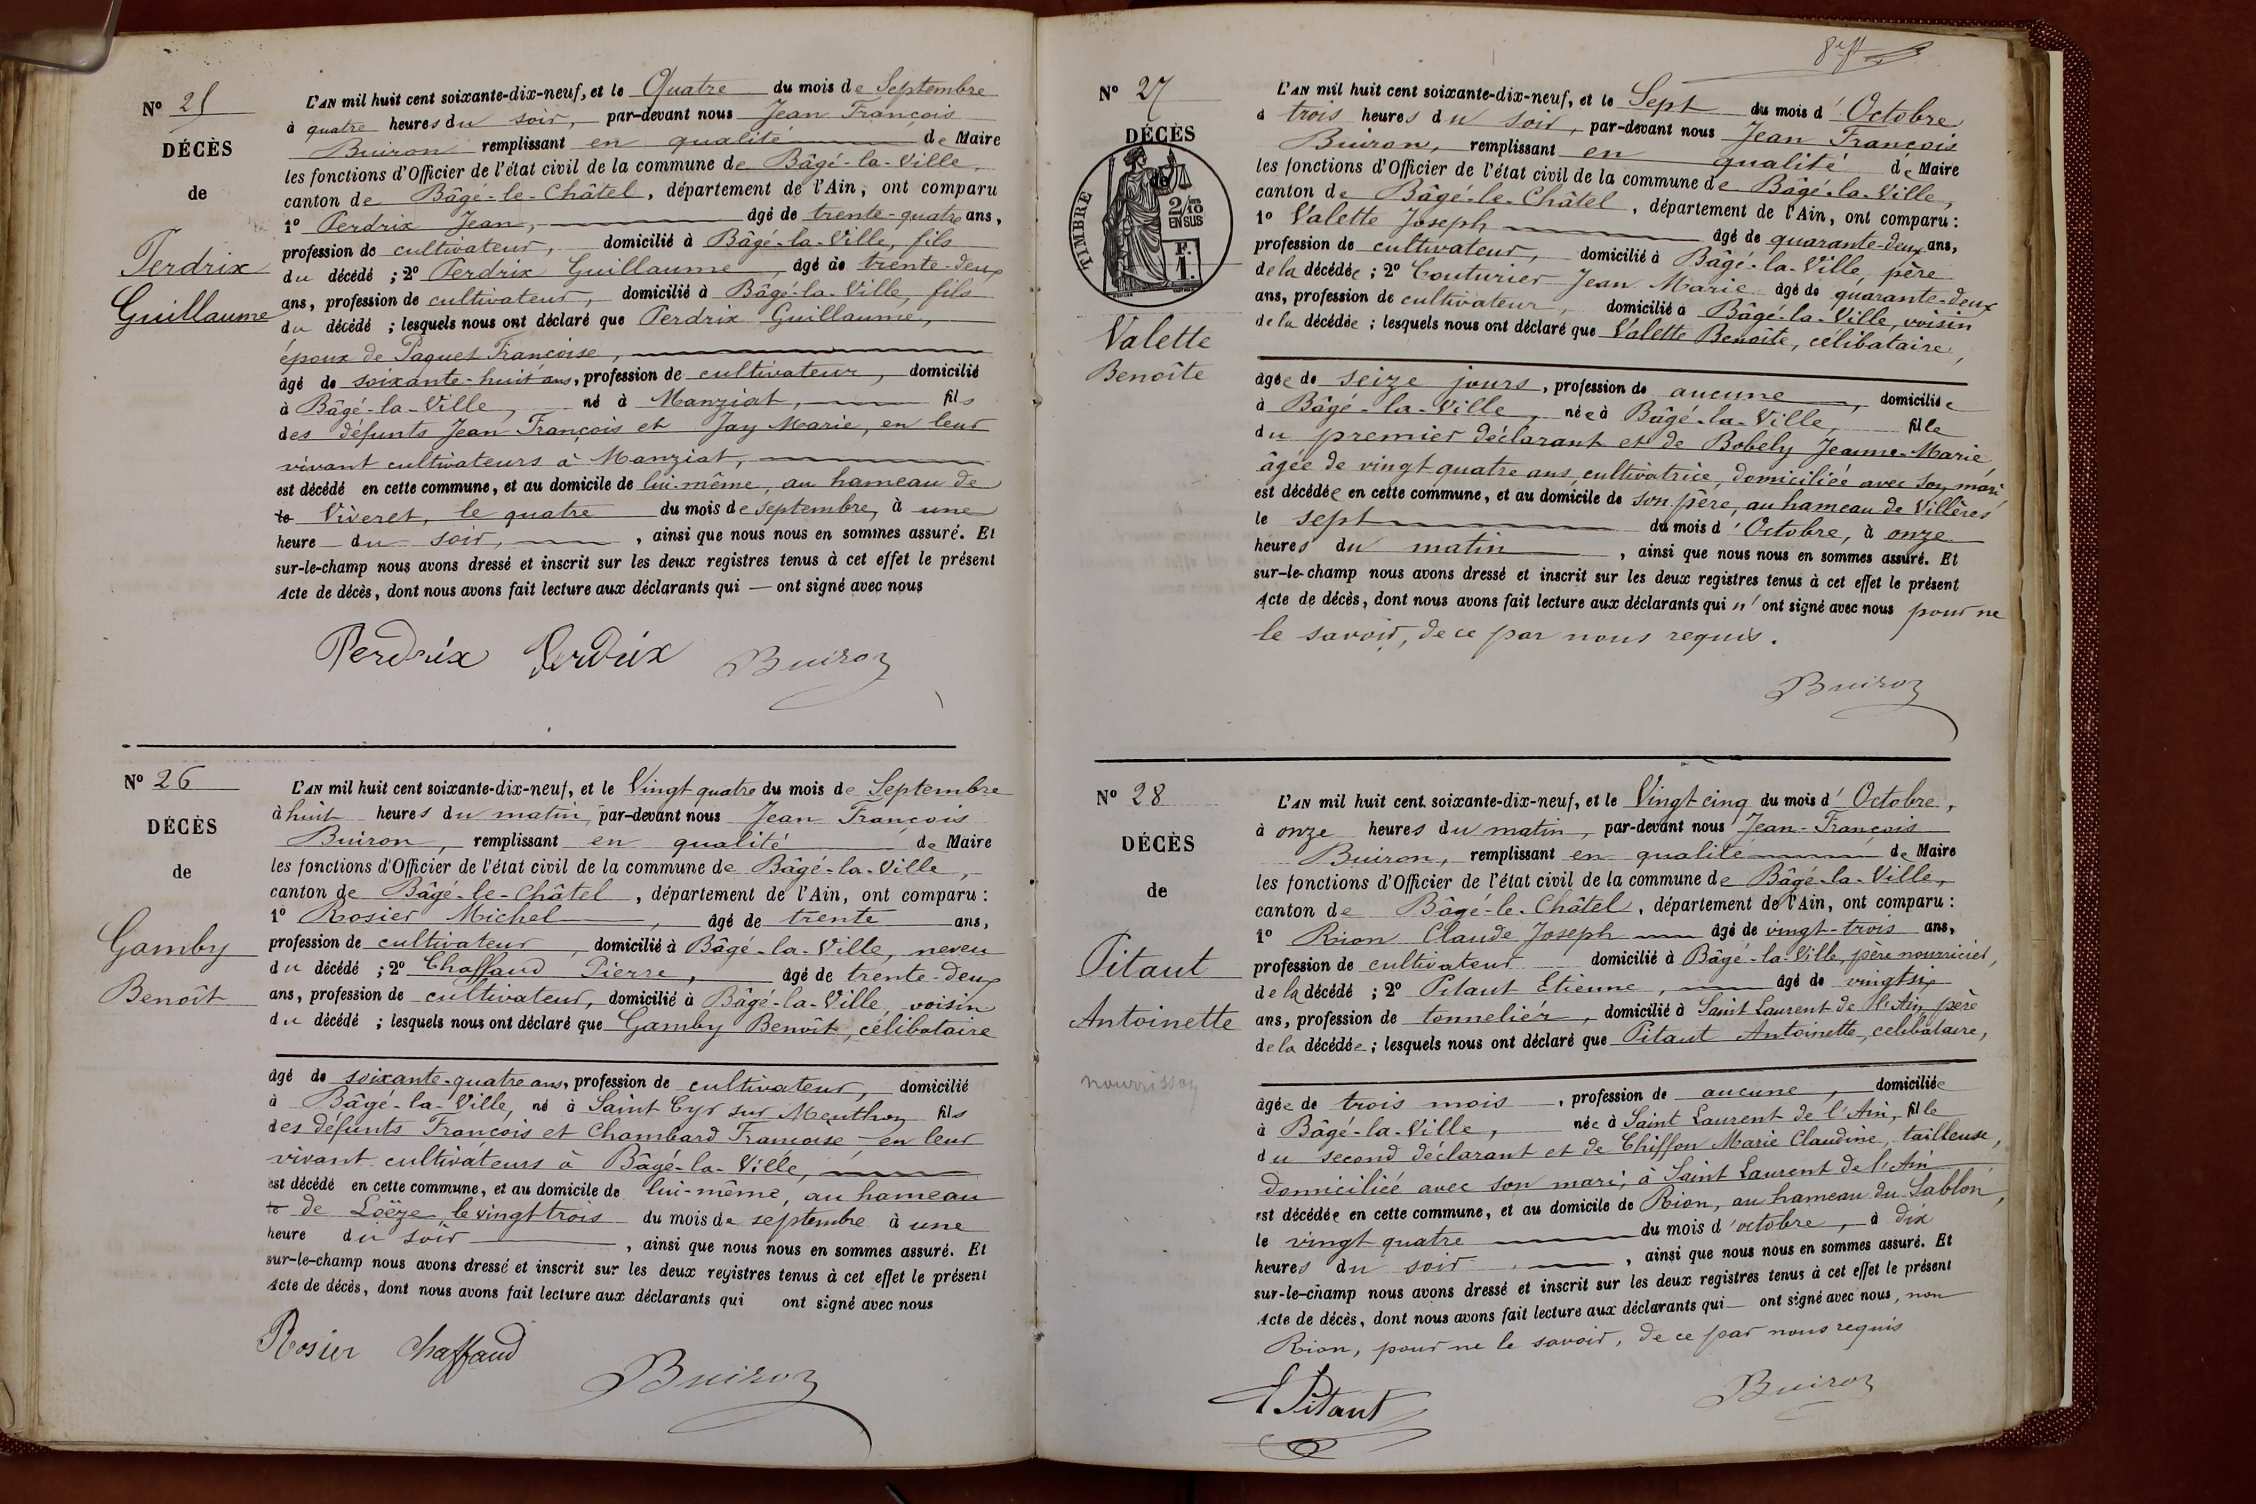 N° 25
DÉCÈS
de
Perdrix
Guillaume
L'AN mil huit cent soixante-dix-neuf, et le Quatre du mois de Septembre
à quatre heures du soir, par-devant nous Jean François
Buiron remplissant en qualité de Maire
les fonctions d'Officier de l'état civil de la commune de Bâgé-la-Ville,
canton de Bâgé-le-Châtel, département de l'Ain, ont comparu
1° Perdrix Jean, âgé de trente-quatre ans,
profession de cultivateur, domicilié à Bâgé-la-Ville, fils
du décédé ; 2° Perdrix Guillaume, âgé de trente-deux
ans, profession de cultivateur, domicilié à Bâgé-la-Ville, fils
du décédé ; lesquels nous ont déclaré que Perdrix Guillaume,
époux de Paquet Françoise,
âgé de soixante-huit ans, profession de cultivateur, domicilié
à Bâgé-la-Ville, né à Manziat, fils
des défunts Jean François et Jay Marie, en leur
vivant cultivateurs à Manziat,
est décédé en cette commune, et au domicile de lui-même, au hameau de
le Viveret, le quatre du mois de septembre, à une
heure du soir, ainsi que nous nous en sommes assuré. Et
sur-le-champ nous avons dressé et inscrit sur les deux registres tenus à cet effet le présent
Acte de décès, dont nous avons fait lecture aux déclarants qui — ont signé avec nous
Perdrix Perdrix Buiron
N° 26
DÉCÈS
de
Gamby
Benoît
L'AN mil huit cent soixante-dix-neuf, et le Vingt quatre du mois de Septembre
à huit heures du matin, par-devant nous Jean François
Buiron, remplissant en qualité de Maire
les fonctions d'Officier de l'état civil de la commune de Bâgé-la-Ville,
canton de Bâgé-le-Châtel, département de l'Ain, ont comparu :
1° Rosier Michel, âgé de trente ans,
profession de cultivateur, domicilié à Bâgé-la-Ville, neveu
du décédé ; 2° Chaffaud Pierre, âgé de trente-deux
ans, profession de cultivateur, domicilié à Bâgé-la-Ville, voisin
du décédé ; lesquels nous ont déclaré que Gamby Benoît, célibataire
âgé de soixante-quatre ans, profession de cultivateur, domicilié
à Bâgé-la-Ville, né à Saint Cyr sur Menthon fils
des défunts François et Chambard Françoise - en leur
vivant cultivateurs à Bâgé-la-Ville,
est décédé en cette commune, et au domicile de lui-même, au hameau
le de Loëze, le vingt trois du mois de septembre à une
heure du soir, ainsi que nous nous en sommes assuré. Et
sur-le-champ nous avons dressé et inscrit sur les deux registres tenus à cet effet le présent
Acte de décès, dont nous avons fait lecture aux déclarants qui ont signé avec nous
Rosier Chaffaud
Buiron
N° 27
DÉCÈS
TIMBRE
2/10
EN SUS
F.
1.
Valette
Benoîte
L'AN mil huit cent soixante-dix-neuf, et le Sept du mois d'Octobre
à trois heures du soir, par-devant nous Jean François
Buiron, remplissant en qualité de Maire
les fonctions d'Officier de l'état civil de la commune de Bâgé-la-Ville,
canton de Bâgé-le-Châtel, département de l'Ain, ont comparu :
1° Valette Joseph âgé de quarante-deux ans,
profession de cultivateur, domicilié à Bâgé-la-Ville, père
de la décédée ; 2° Couturier Jean Marie âgé de quarante-deux
ans, profession de cultivateur, domicilié à Bâgé-la-Ville, voisin
de la décédée ; lesquels nous ont déclaré que Valette Benoîte, célibataire,
âgée de seize jours, profession de aucune, domiciliée
à Bâgé-la-Ville, née à Bâgé-la-Ville, fille
du premier déclarant et de Bobely Jeanne-Marie,
âgée de vingt quatre ans, cultivatrice, domiciliée avec son mari
est décédée en cette commune, et au domicile de son père, au hameau de Villères
le sept du mois d'Octobre, à onze
heures du matin, ainsi que nous nous en sommes assuré. Et
sur-le-champ nous avons dressé et inscrit sur les deux registres tenus à cet effet le présent
Acte de décès, dont nous avons fait lecture aux déclarants qui n'ont signé avec nous pour ne
le savoir, de ce par nous requis.
Buiron
N° 28
DÉCÈS
de
Pitaut
Antoinette
nourrisson
L'AN mil huit cent soixante-dix-neuf, et le Vingt cinq du mois d'Octobre,
à onze heures du matin, par-devant nous Jean-François
Buiron, remplissant en qualité de Maire
les fonctions d'Officier de l'état civil de la commune de Bâgé-la-Ville,
canton de Bâgé-le-Châtel, département de l'Ain, ont comparu :
1° Rion Claude Joseph âgé de vingt-trois ans,
profession de cultivateur domicilié à Bâgé-la-Ville, père nourricier,
de la décédé ; 2° Pitaut Etienne, âgé de vingt six
ans, profession de tonnelier, domicilié à Saint Laurent de l'Ain, père
de la décédée ; lesquels nous ont déclaré que Pitaut Antoinette, célibataire,
âgée de trois mois, profession de aucune, domiciliée
à Bâgé-la-Ville, née à Saint Laurent de l'Ain, fille
du second déclarant et de Chiffon Marie Claudine, tailleuse,
domiciliée avec son mari, à Saint Laurent de l'Ain
est décédée en cette commune, et au domicile de Rion, au hameau du Sablon,
le vingt quatre du mois d'octobre, à dix
heures du soir, ainsi que nous nous en sommes assuré. Et
sur-le-champ nous avons dressé et inscrit sur les deux registres tenus à cet effet le présent
Acte de décès, dont nous avons fait lecture aux déclarants qui — ont signé avec nous, non
Rion, pour ne le savoir, de ce par nous requis
E Pitaut
Buiron